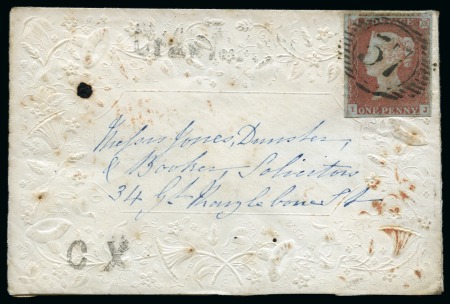 57
ONE PENNY
I J
Messrs Jones, Dunster,
& Booker, Solicitors
34 Gt Marylebone St
C X